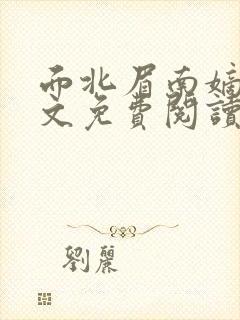 而北眉南嫡
文免費閱讀
劉麗